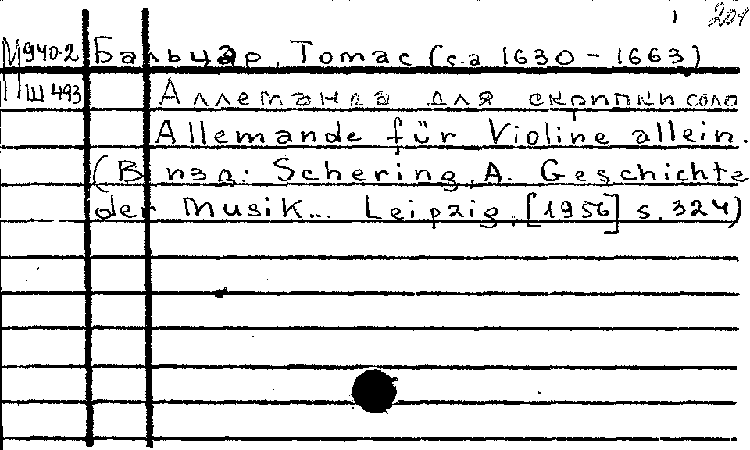 1 201
М940-2 Бальцар, Томас (ca 1630-1663)
Ш493 Аллеманда для скрипки соло
Allemande für Violine allein.
(В изд: Schering, A. Geschichte
der Musik... Leipzig, [1956] s. 324)